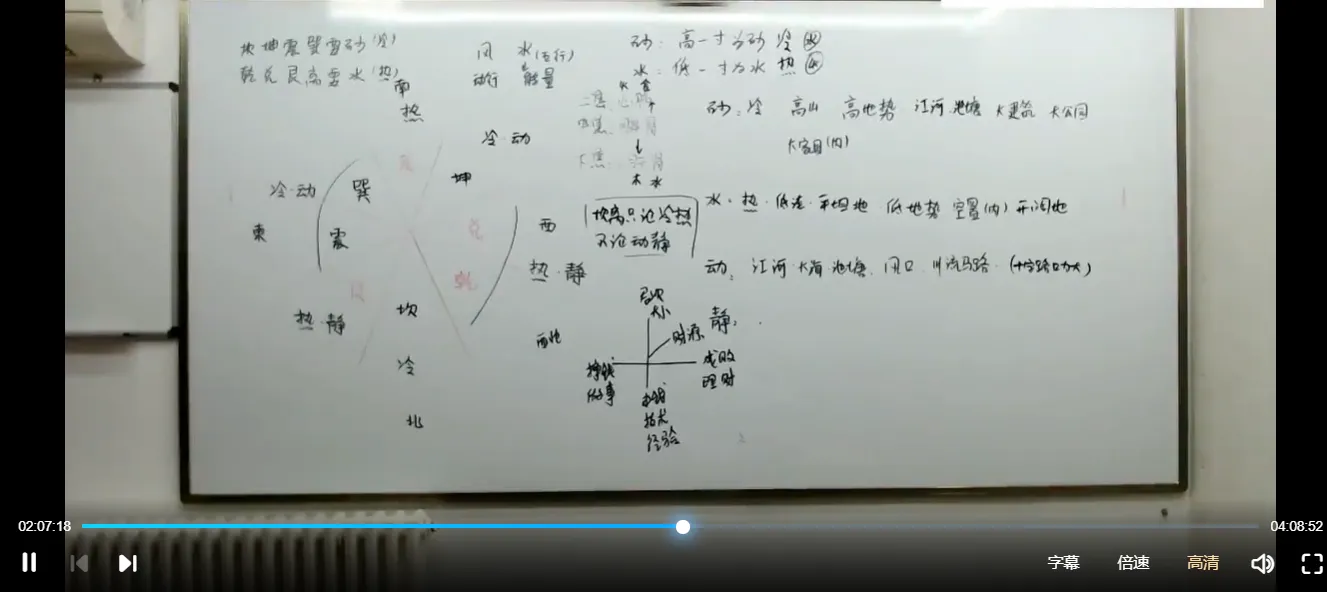 坎坤震巽要砂(冷)
乾兑艮离要水(热)
风 水(五行)
动行 能量
砂:高一寸为砂 冷 水
水:低一寸为水 热 火
砂:冷 高山 高地势 江河池塘 大建筑 大公园
大家具(内)
水·热·低洼·平坦地 低地势 空置(内) 开阔地
动:江河·大海·池塘、风口、川流马路·(十字路口为大)
静:
南
热
冷·动
坤
冷·动
巽
東
震
热·静
坎
冷
北
兑
乾
西
热·静
西北
木 水
坎离只论冷热
不论动静
大小
财源
挣钱
做事
成败
理财
技术
经验
02:07:18
04:08:52
字幕
倍速
高清